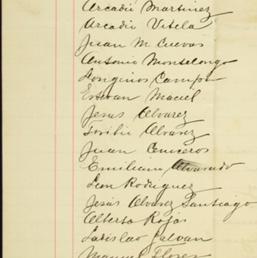 Arcadio Martinez
Arcadio Vitela
Juan M Cuevas
Antonio Montelongo
Longinos Campo
Estevan Maciel
Jesus Alvarez
Toribio Alvarez
Juan Cisneros
Emiliano Alvarado
Leon Rodriguez
Jesús Alvarez Santiago
Alberto Rojas
Ladislao Galvan
Manuel Flores